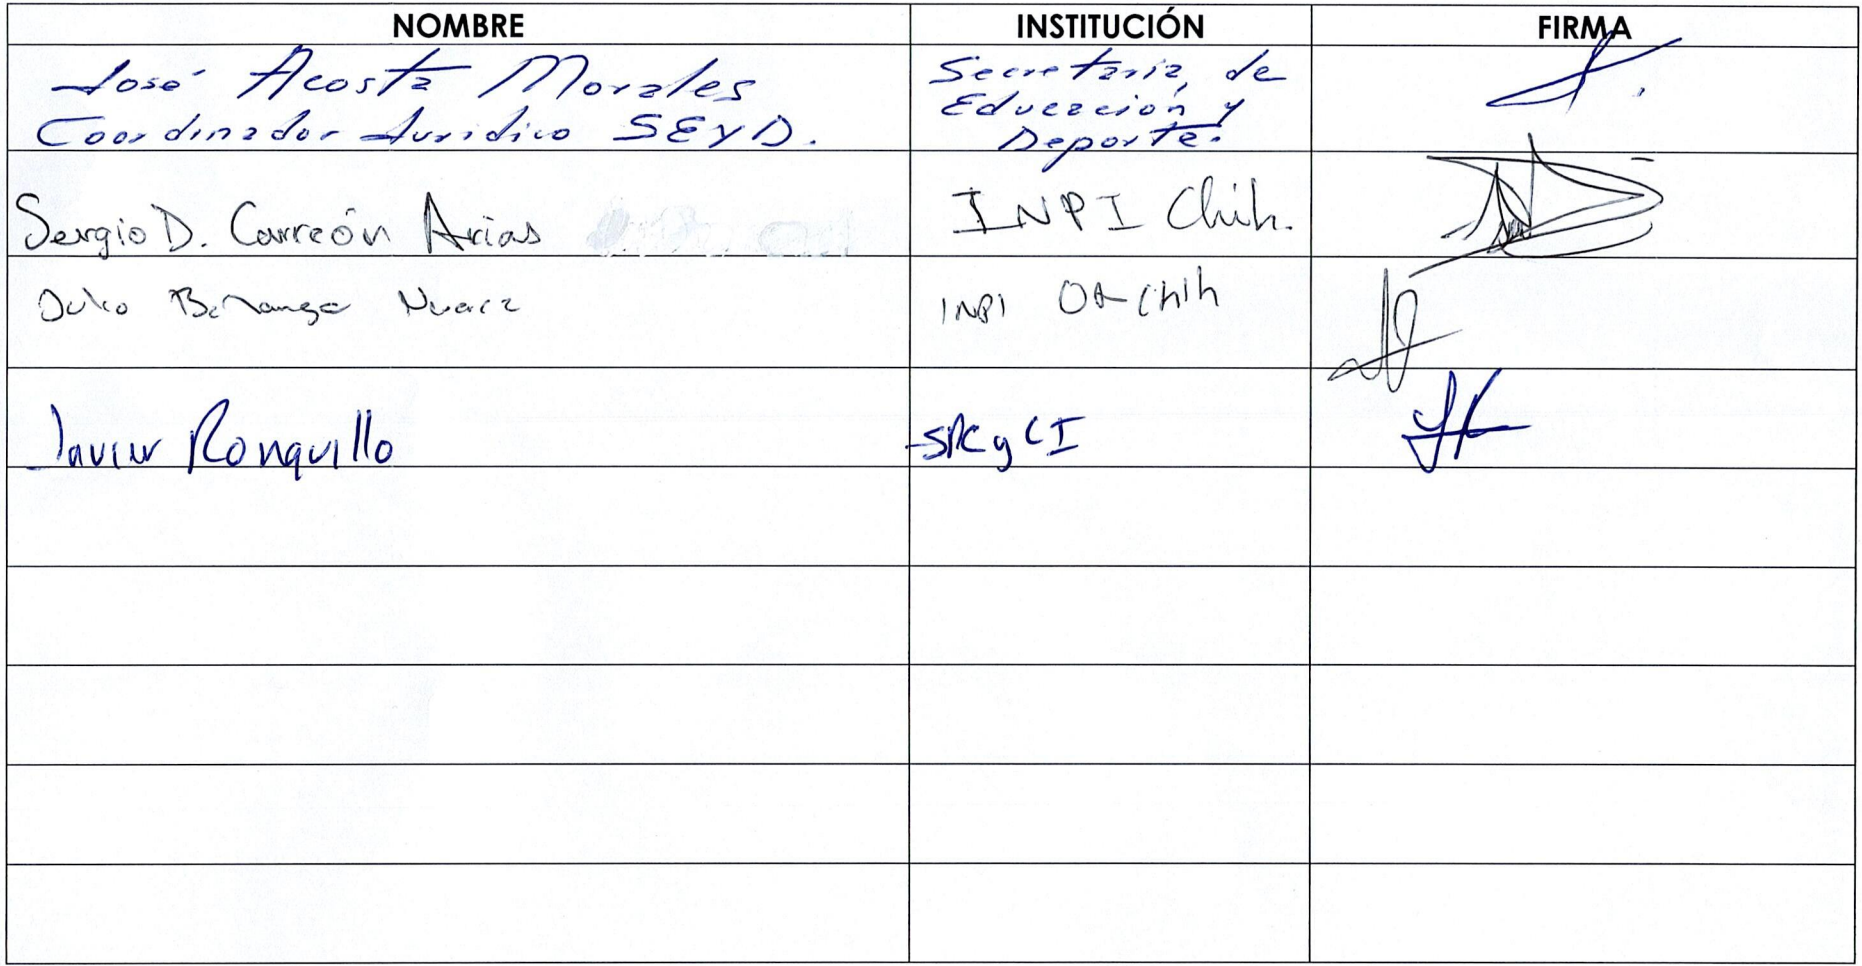 NOMBRE INSTITUCIÓN FIRMA
José Acosta Morales
Coordinador Jurídico SEyD.
Secretaria de
Educación y
Deporte.
Sergio D. Carreón Arias INPI Chih.
INPI OR Chih
Javier Ronquillo SRC y CI